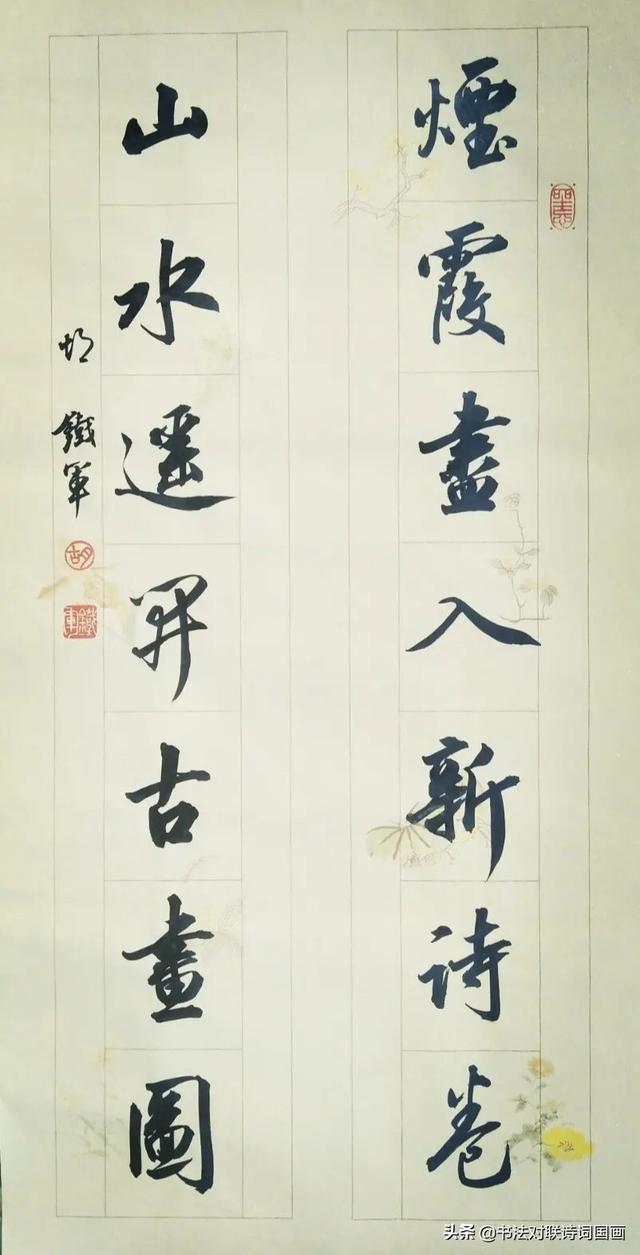 煙霞盡入新詩卷
山水遥開古畫圖
胡鐵軍
胡
鐵軍
头条 @书法对联诗词国画